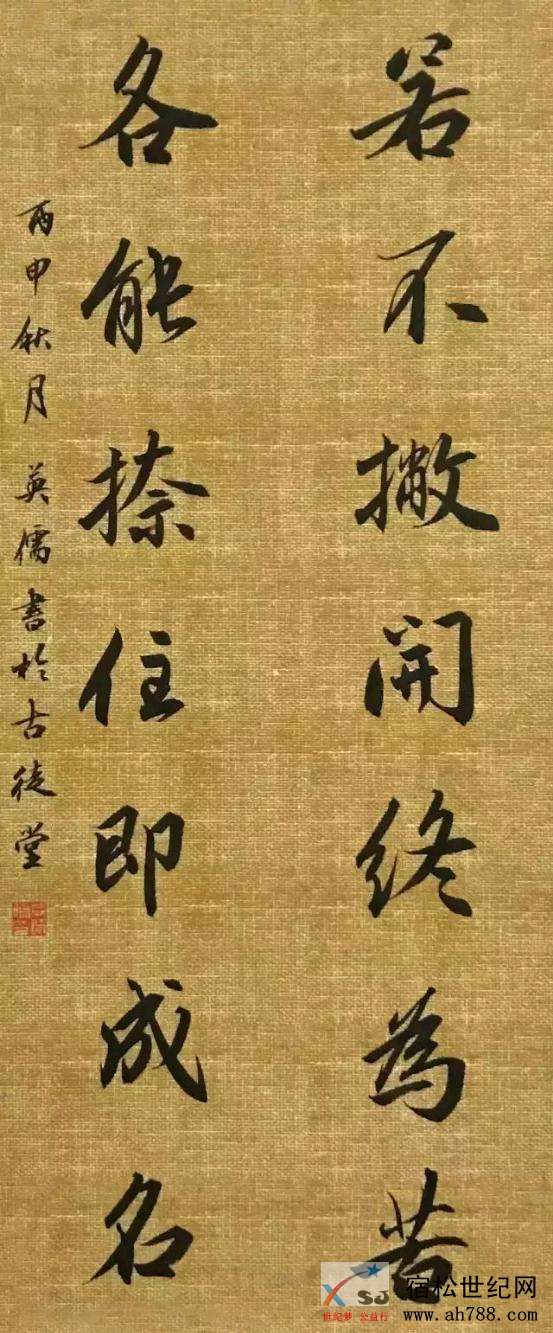 若不撇開終為苦
各能捺住即成名
丙申秋月 英儒書於古徒堂
XSJ
世纪梦 公益行
宿松世纪网
www.ah788.com